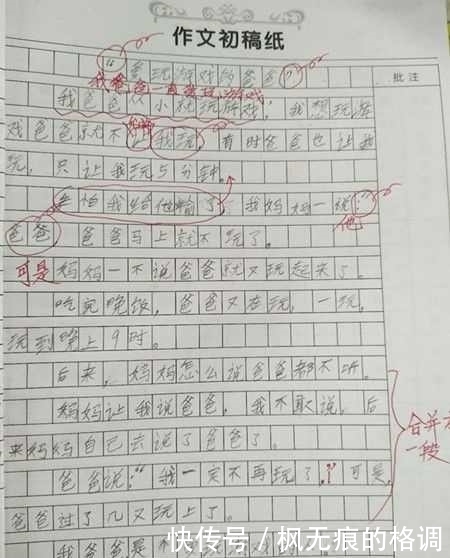 作文初稿纸
批注
"爱玩游戏的爸爸"
我爸爸一直爱玩游戏
我爸爸从小就玩游戏，我想玩游
戏爸爸就不让我玩，有时爸爸也让我
玩，只让我玩5分钟。
怕我给他输了，我妈妈一说：
他
爸爸 爸爸马上就不玩了。
可是妈妈一不说爸爸就又玩起来了。
吃完晚饭，爸爸又在玩，一玩，
玩到晚上9时。
后来，妈妈怎么说爸爸都不听。
妈妈让我说爸爸，我不敢说，后
来妈妈自己去说了爸爸了。
合并为
一段
爸爸说："我一定不再玩了。"可是
爸爸过了几又玩上了。
我爸爸是
快传号／枫无痕的格调